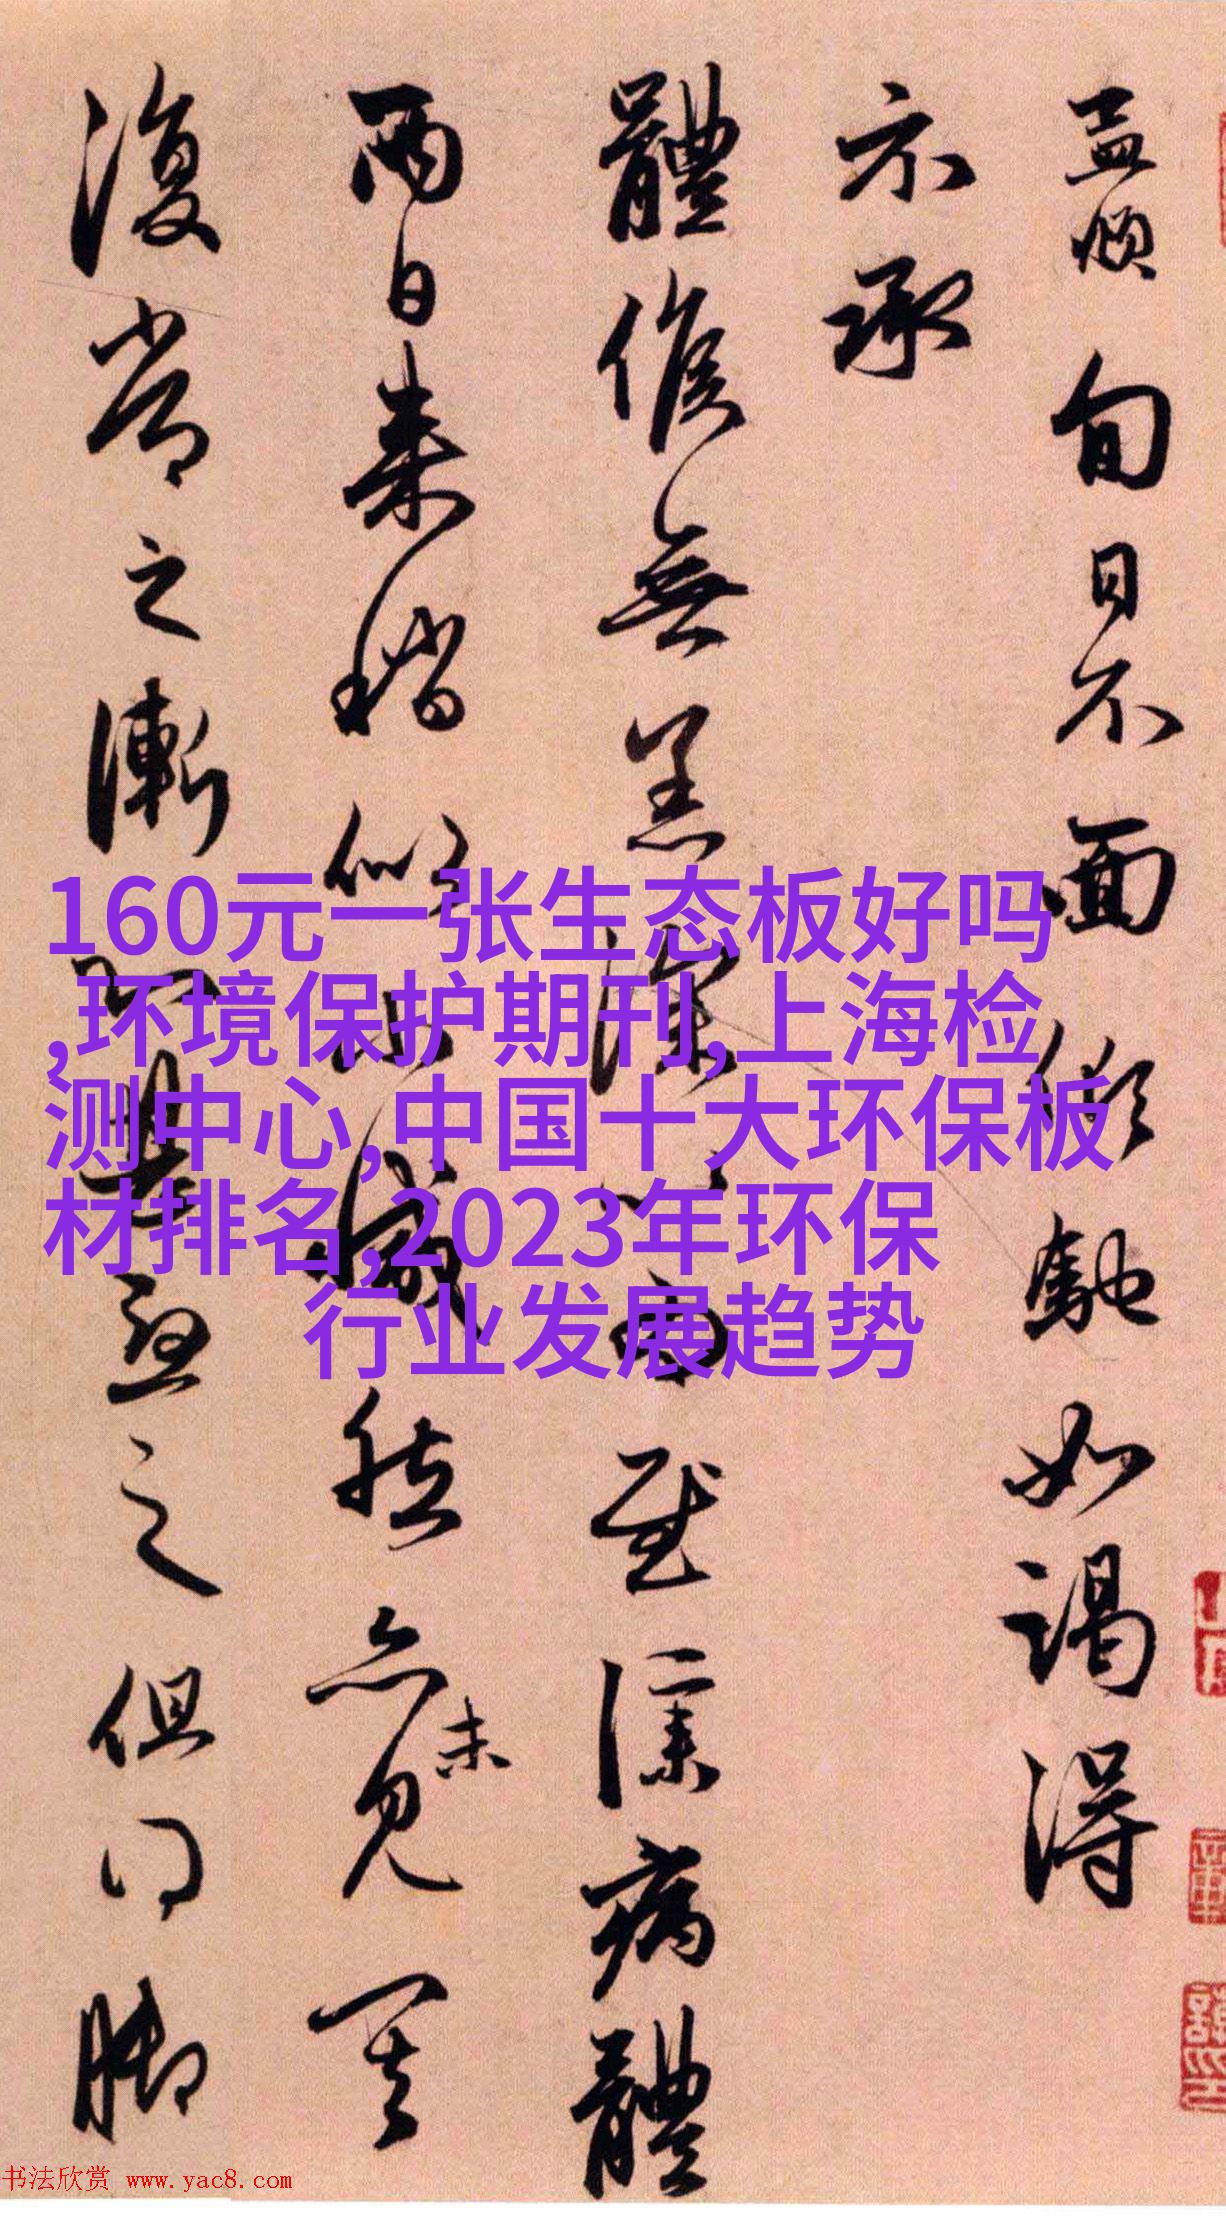 孟頫旬日不面馳如渴得
示承
體候無恙深以慰僕病體
兩日來稍似減然亦未見其
復常之漸以是之但脚
160元一张生态板好吗
,环境保护期刊,上海检
测中心,中国十大环保板
材排名,2023年环保
行业发展趋势
书法欣赏 www.yac8.com